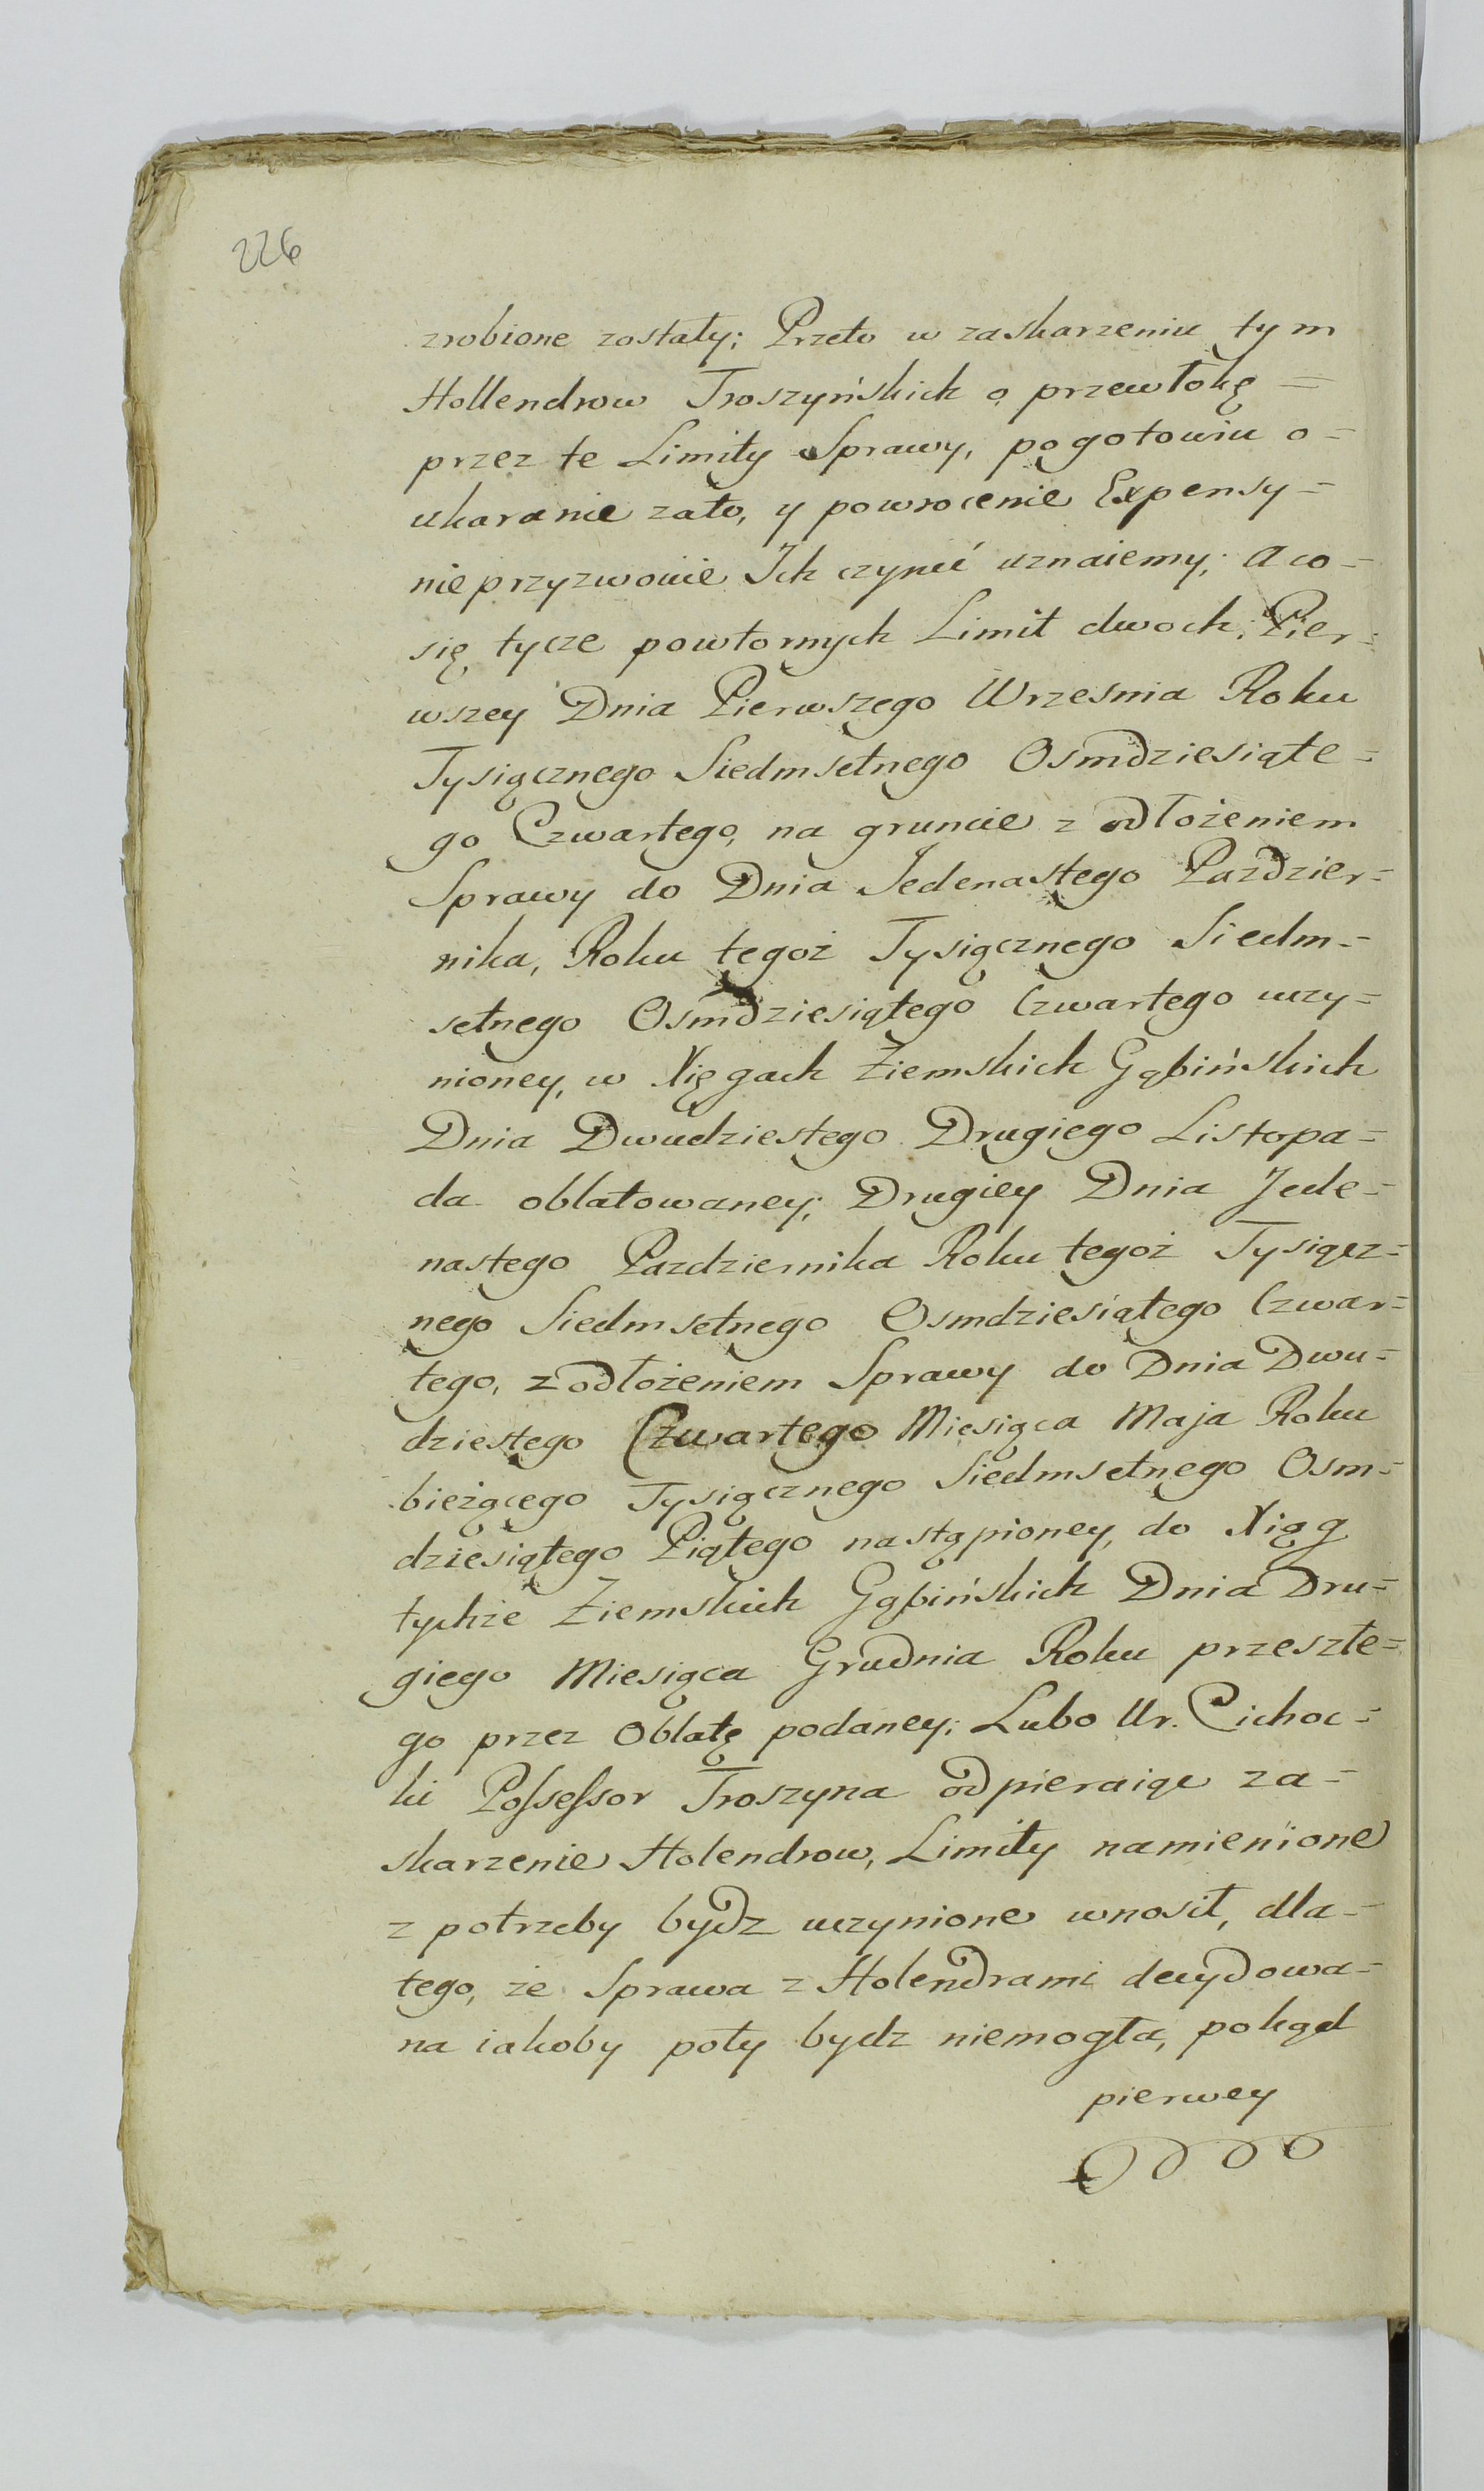 226
zrobione zostały; Przeto w zaskarzeniu tym
Hollendrow Troszyńskich o przewłokę =
przez te Limity Sprawy, pogotowiu o =
ukaranie zato, y powrocenie Expensy =
nieprzyzwoicie Ich czynić uznaiemy; a co =
się tycze powtornych Limit dwoch, Pier=
wszey Dnia Pierwszego Wrzesnia Roku
Tysiącznego Siedmsetnego Osmdziesiąte=
go Czwartego, na gruncie z odłożeniem
Sprawy do Dnia Jedenastego Pazdzier=
nika, Roku tegoż Tysiącznego Siedm=
setnego Osmdziesiątego Czwartego uczy=
nioney, w Xięgach Ziemskich Gąbińskich
Dnia Dwudziestego Drugiego Listopa=
da oblatowaney; Drugiey Dnia Jede=
nastego Pazdziernika Roku tegoż Tysiącz=
nego Siedmsetnego Osmdziesiątego Czwar=
tego, z odłożeniem Sprawy do Dnia Dwu=
dziestego Czwartego Miesiąca Maja Roku
bieżącego Tysiącznego Siedmsetnego Osm=
dziesiątego Piątego nastąpioney, do Xiąg
tychże Ziemskich Gąbińskich Dnia Dru=
giego Miesiąca Grudnia Roku przeszłe=
go przez Oblatę podaney; Lubo Ur. Cichoc=
ki Possessor Troszyna odpieraiąc za=
skarzenie Holendrow, Limity namienione
z potrzeby bydz uczynione wnosił, dla=
tego, że Sprawa z Holendrami decydowa=
na iakoby poty bydz niemogła, pokąd
pierwey